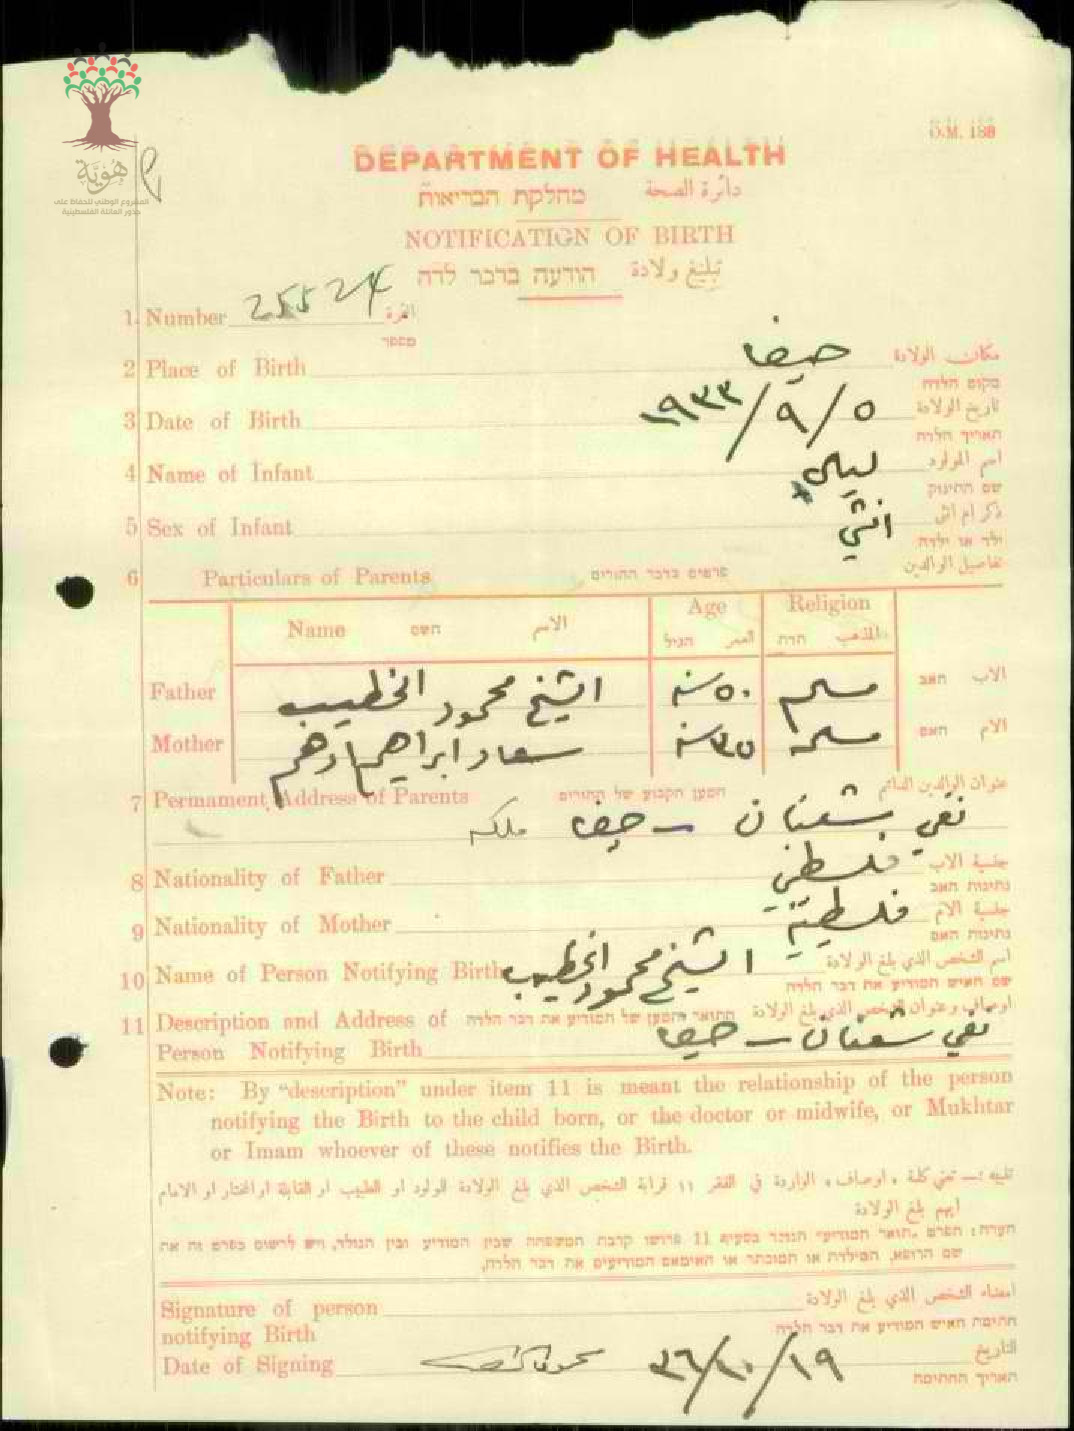 هوية
المشروع الوطني للحفاظ على
جذور العائلة الفلسطينية
O.M. 188
DEPARTMENT OF HEALTH
מחלקת הבריאות دائرة الصحة
NOTIFICATION OF BIRTH
הודעה בדבר לדה تبليغ ولادة
1 Number 25524 النمرة
מספר
2 Place of Birth حيفا مكان الولادة
מקום הלדה
3 Date of Birth ٥/٩/١٩٣٣ تاريخ الولادة
תאריך הלדה
4 Name of Infant ليلى اسم المولود
שם התינוק
5 Sex of Infant انثى ذكر ام انثى
ילד או ילדה
6 Particulars of Parents פרטים בדבר ההורים تفاصيل الوالدين
Name השם الاسم Age הגיל العمر Religion הדת المذهب
Father الشيخ محمود الخطيب ٥٠ سنه مسلم האב الاب
Mother سعاد ابراهيم ادهم ٣٥ سنه مسلمه האם الام
7 Permament Address of Parents המען הקבוע של ההורים عنوان الوالدين الدائم
شعنان – حيفا ملكه
8 Nationality of Father فلسطيني جنسية الاب
נתינות האב
9 Nationality of Mother فلسطينية جنسية الام
נתינות האם
10 Name of Person Notifying Birth الشيخ محمود الخطيب اسم الشخص الذي بلغ الولادة
שם האיש המודיע את דבר הלדה
11 Description and Address of התואר והמען של המודיע את דבר הלדה اوصاف وعنوان الشخص الذي بلغ الولادة
Person Notifying Birth شعنان – حيفا
Note: By “description” under item 11 is meant the relationship of the person
notifying the Birth to the child born, or the doctor or midwife, or Mukhtar
or Imam whoever of these notifies the Birth.
تنبيه :— تعني كلمة « اوصاف » الواردة في الفقر ١١ قرابة الشخص الذي بلغ الولادة للولود او الطبيب او القابلة او المختار او الامام
ايهم بلغ الولادة
הערה: הפרט „תואר המודיע״ הנזכר בסעיף 11 פרושו קרבת המשפחה שבין המודיע ובין הנולד, ויש לרשום בפרט זה את
שם הרופא, המילדת או המוכתר או האימאם המודיעים את דבר הלדה.
Signature of person امضاء الشخص الذي بلغ الولادة
notifying Birth חתימת האיש המודיע את דבר הלדה
Date of Signing ١٩/١٠/٣٦ التاريخ
תאריך החתימה